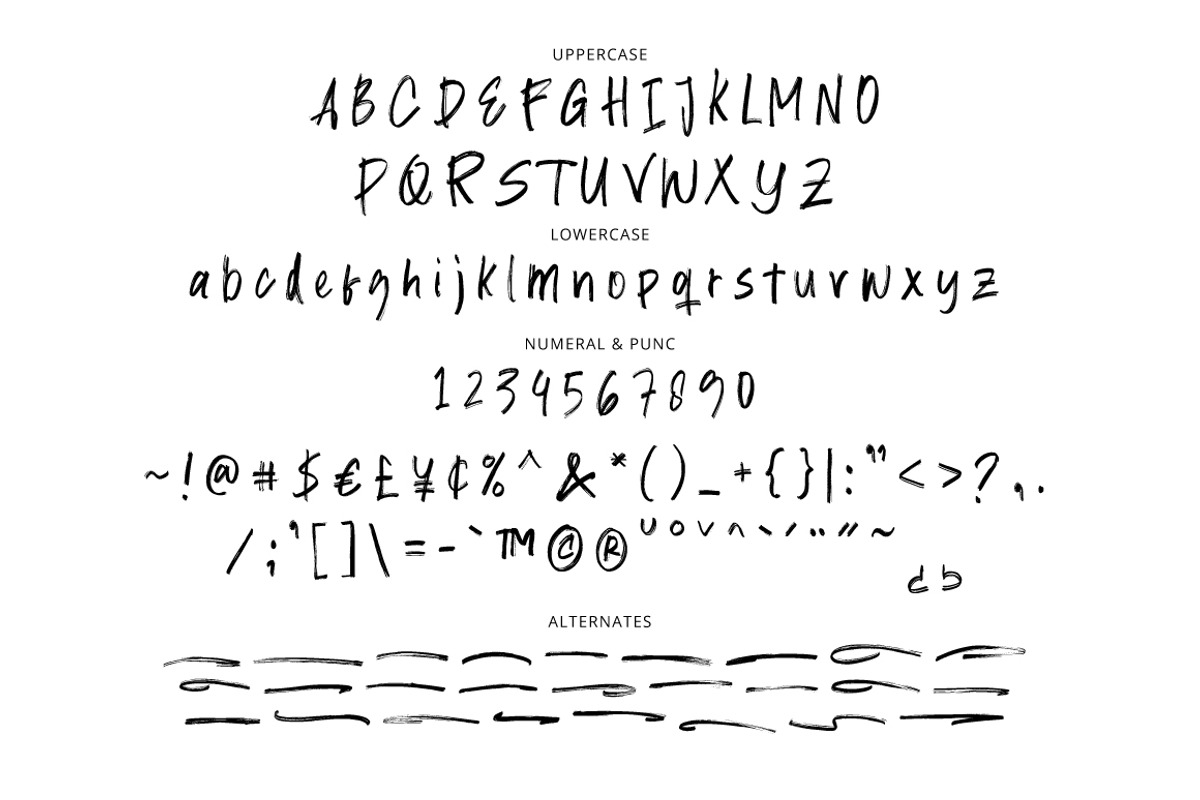 UPPERCASE
A B C D E F G H I J K L M N O
P Q R S T U V W X Y Z
LOWERCASE
a b c d e f g h i j k l m n o p q r s t u v w x y z
NUMERAL & PUNC
1 2 3 4 5 6 7 8 9 0
~ ! @ # $ € £ ¥ ¢ % ^ & * ( ) _ + { } | : " < > ? , .
/ ; ' [ ] \ = - ` ™ © ® ˘ ° ˇ ^ ` ´ ¨ ˝ ~
ALTERNATES